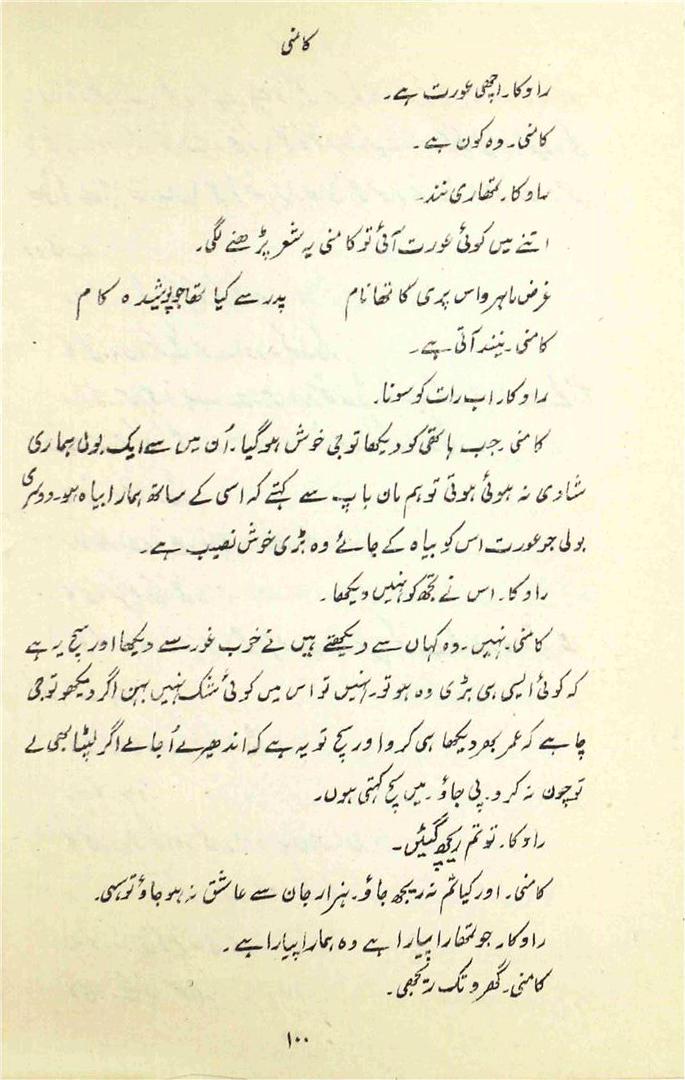 کامنی
راوکا۔ اچھی عورت ہے۔
کامنی۔ وہ کون ہے۔
راوکا۔ تمھاری نند۔
اتنے میں کوئی عورت آئی تو کامنی یہ شعر پڑھنے لگی۔
غرض ماہرو اس پری کا تھا نام پدر سے کیا تھا جو پوشیدہ کام
کامنی۔ نیند آتی ہے۔
راوکا۔ اب رات کو سونا۔
کامنی۔ جب ہاتھی کو دیکھا تو جی خوش ہو گیا۔ اُن میں سے ایک بولی ہماری
شادی نہ ہوئی ہوتی تو ہم مان باپ سے کہتے کہ اسی کے ساتھ ہمارا بیاہ ہو۔ دوسری
بولی جو عورت اس کو بیاہ کے جائے وہ بڑی خوش نصیب ہے۔
راوکا۔ اس نے تجھ کو نہیں دیکھا۔
کامنی۔ نہیں۔ وہ کہاں سے دیکھتے میں نے خوب غور سے دیکھا اور سچ یہ ہے
کہ کوئی ایسی ہی بڑی وہ ہو تو۔ نہیں تو اس میں کوئی شک نہیں بہن اگر دیکھو تو جی
چاہے کہ عمر بھر دیکھا ہی کرو اور سچ تو یہ ہے کہ اندھیرے اُجالے اگر لپٹا بھی لے
تو چون نہ کرو۔ پی جاؤ۔ میں سچ کہتی ہوں۔
راوکا۔ تو تم ریجھ گئیں۔
کامنی۔ اور کیا تم نہ ریجھ جاؤ۔ ہزار جان سے عاشق نہ ہو جاؤ تو سہی۔
راوکا۔ جو تمھارا پیارا ہے وہ ہمارا پیارا ہے۔
کامنی۔ گھرو تک ریجھی۔
۱۰۰